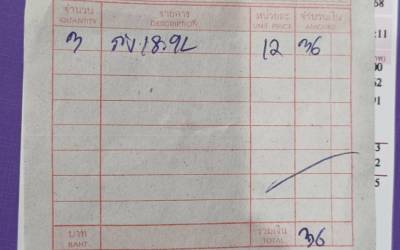 จำนวน รายการ หน่วยละ จำนวนเงิน
QUANTITY DESCRIPTION UNIT PRICE AMOUNT
3 18.9L 12 36
บาท รวมเงิน 36
BAHT TOTAL
68
:11
00
62
91
3
2
5